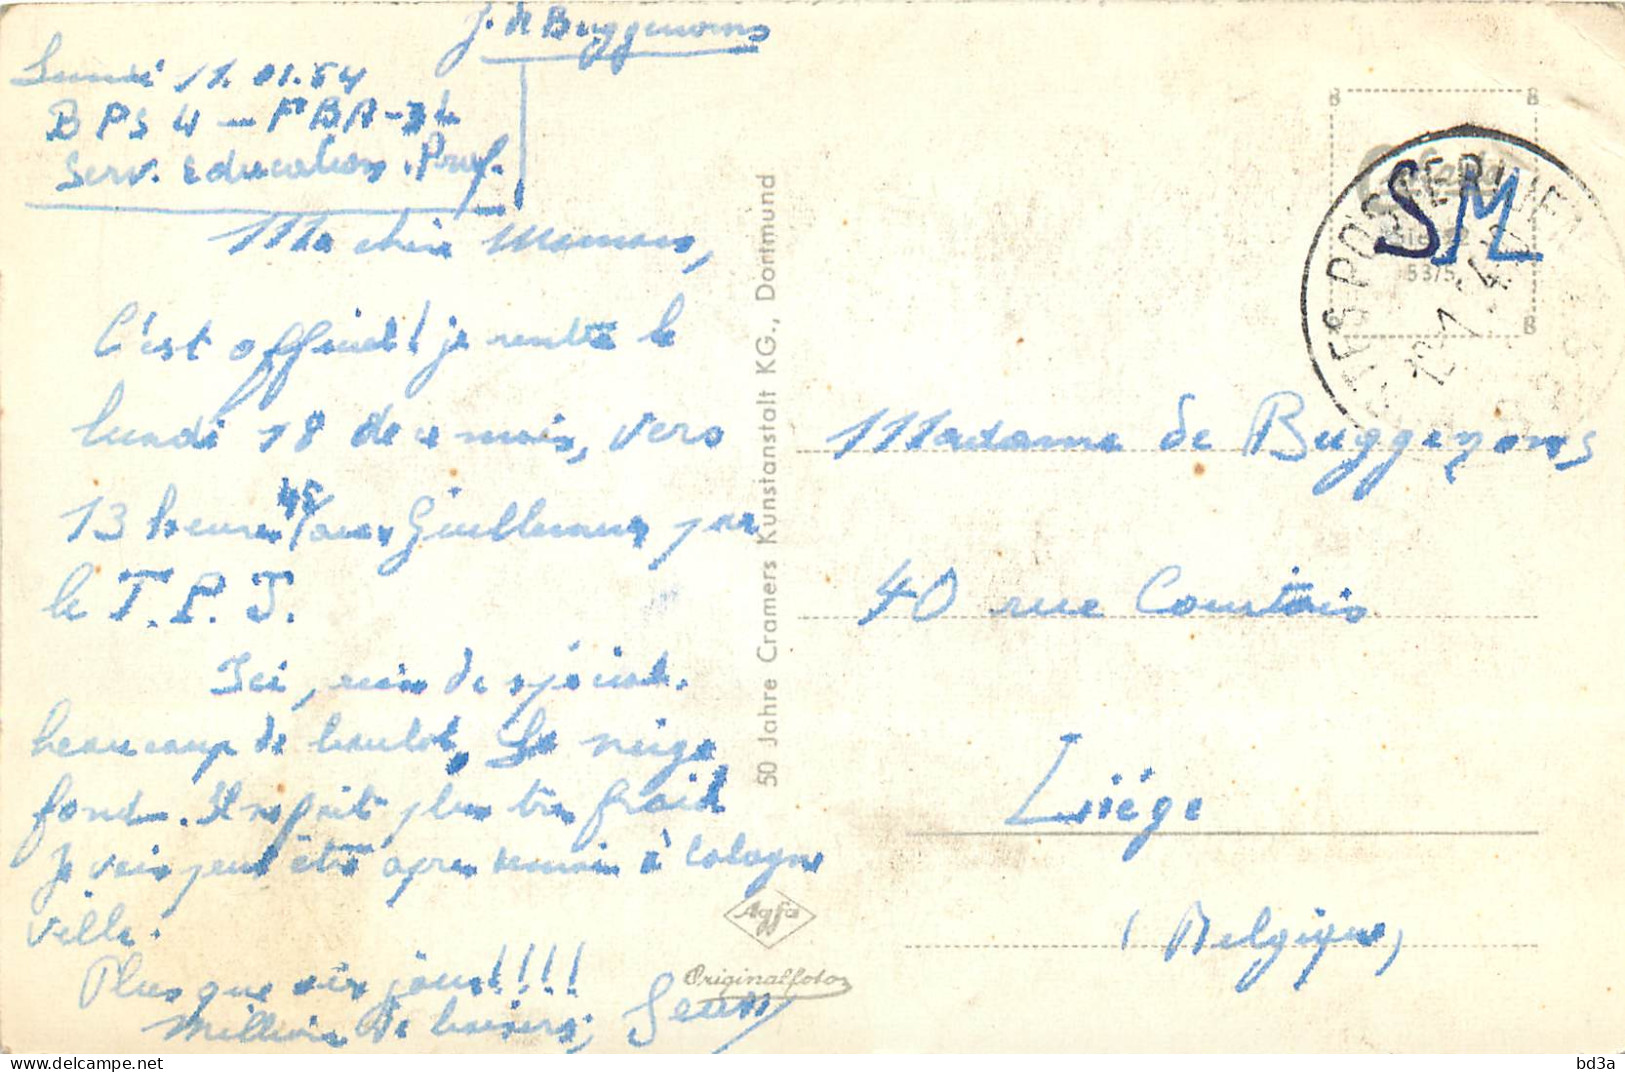 J. de Buggenoms
Lundi 11.01.54
BPS 4 — FBA-
Serv. Education. Prof.
Ma chère Maman,
C'est officiel! je rentre le
lundi 18 de ce mois, vers
13 heures 45 aux Guillemins par
le T.P.J.
Ici, rien de spécial.
beaucoup de boulot, la neige
fond. Il ne fait plus très froid
Je vais peut être après demain à Cologne
ville.
Plus que six jours!!!!
Millions de baisers,
50 Jahre Cramers Kunstanstalt KG., Dortmund
Agfa
Originalfoto
SM
53/5
POSTERIJEN
12-1
Madame de Buggenoms
40 rue Courtois
Liége
(Belgique)
bd3a